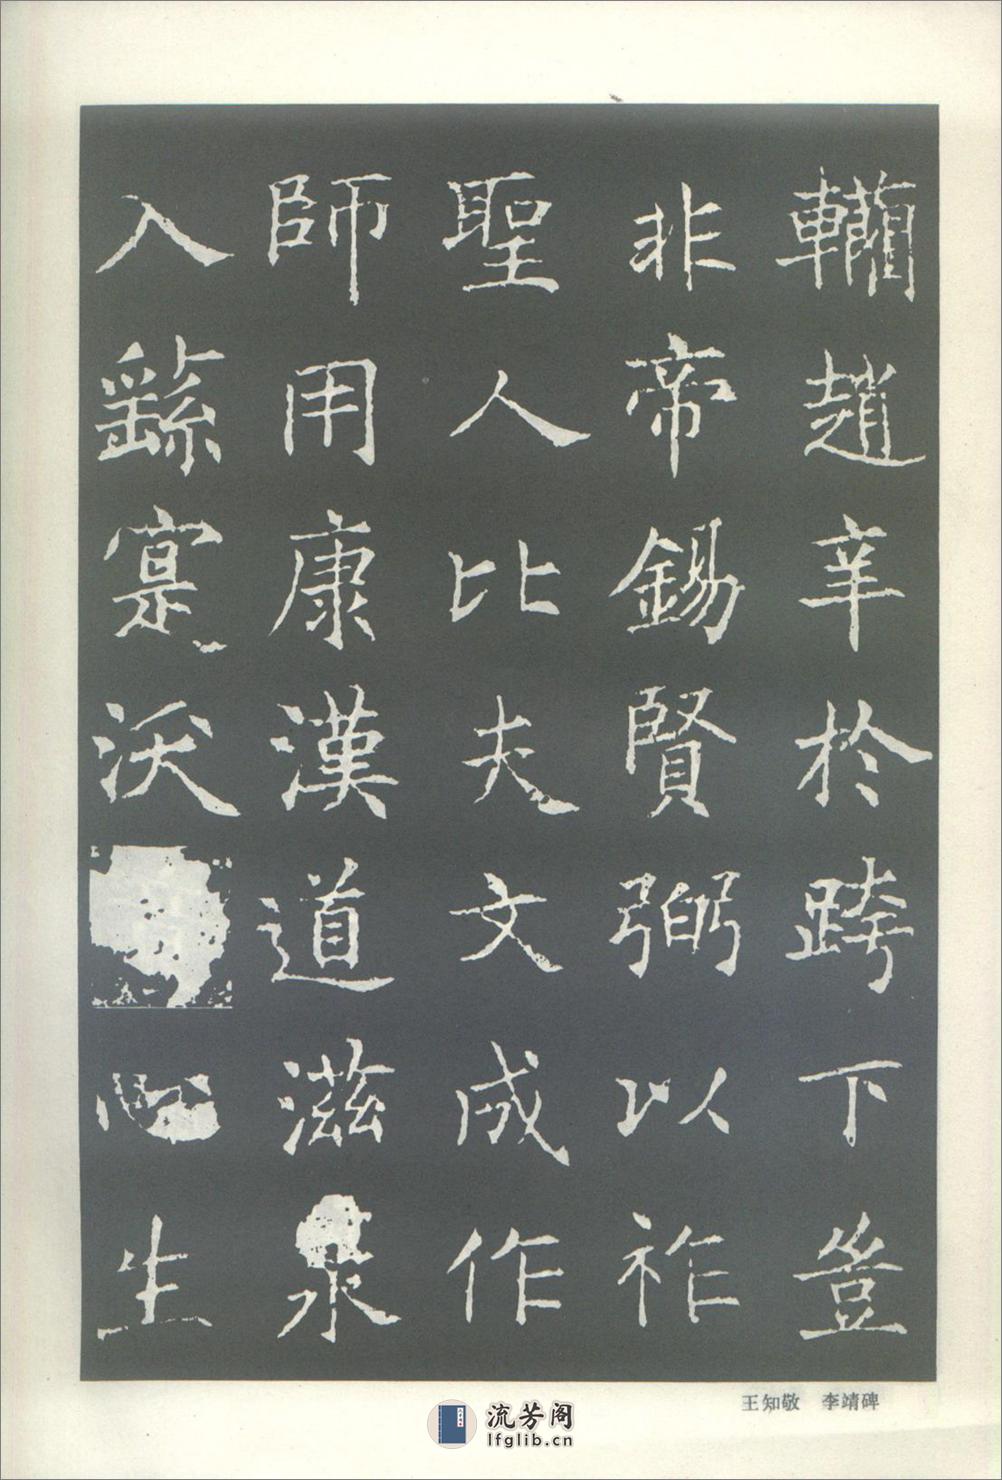 轥趙辛於跨下豈
非帝錫賢弼以祚
聖人比夫文成作
師用康漢道滋泉
入繇寔沃心生
王知敬　李靖碑
流芳阁
lfglib.cn